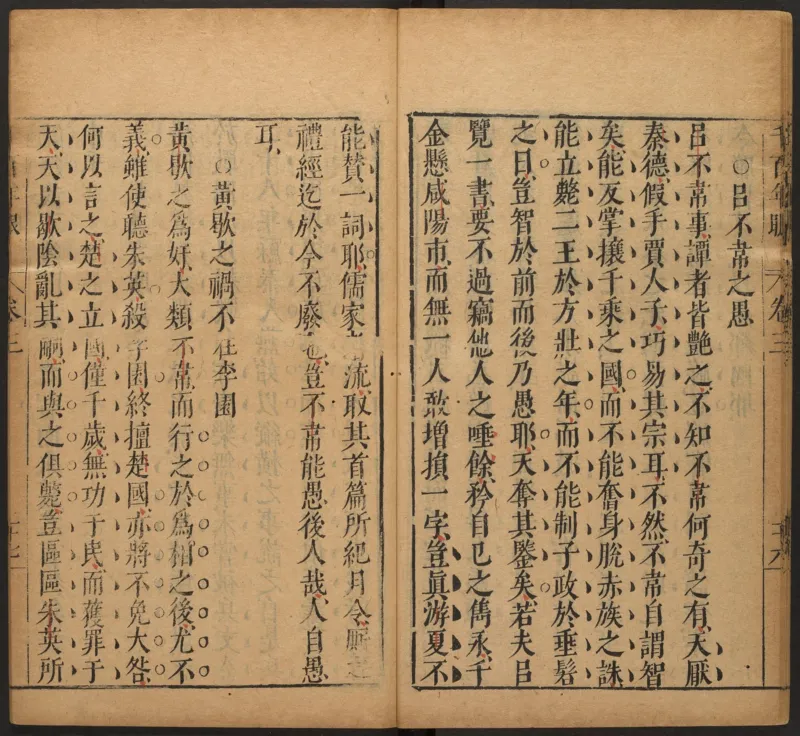 ○呂不常之愚
呂不常事譚者皆艷之不知不常何奇之有天厭
秦德假手賈人子巧易其宗耳不然不常自謂智
矣能反掌攘千乘之國而不能奮身脫赤族之誅
能立斃二王於方壯之年而不能制子政於垂髫
之日豈智於前而後乃愚耶天奪其鑒矣若夫呂
覽一書要不過竊他人之唾餘矜自己之雋永千
金懸咸陽市而無一人敢增損一字豈眞游夏不
能贊一詞耶儒家者流取其首篇所紀月令厠之
禮經迄於今不廢也豈不常能愚後人哉人自愚
耳
○黃歇之禍不在李園
黃歇之爲奸大類不常而行之於爲相之後尤不
義雖使聽朱英殺李園終擅楚國亦將不免大咎
何以言之楚之立國僅千歲無功于民而獲罪于
天天以歇陰亂其嗣而與之俱斃豈區區朱英所
卷三